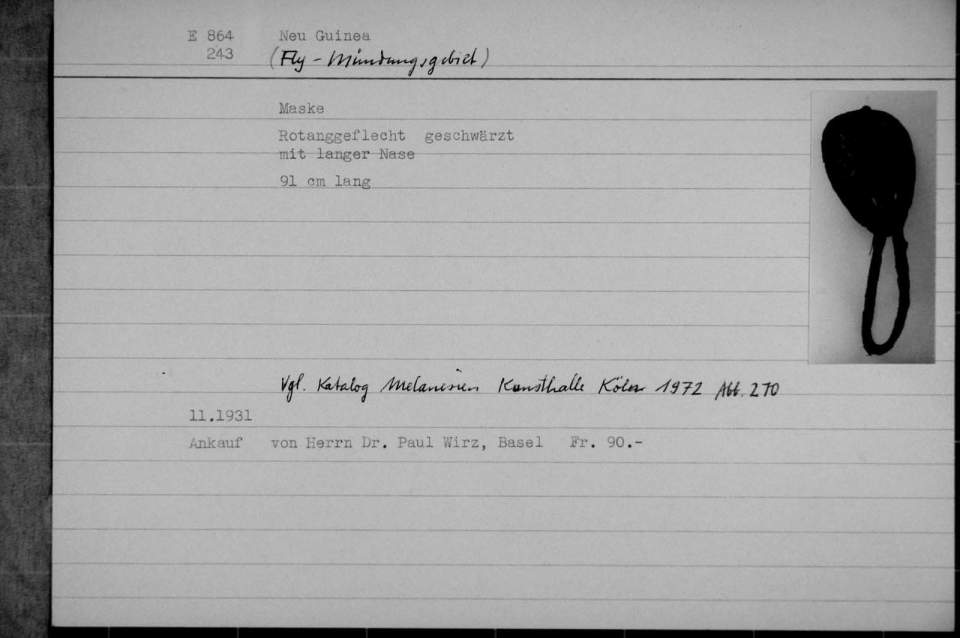 E 864 Neu Guinea
243 (Fly - Mündungsgebiet)
Maske
Rotanggeflecht geschwärzt
mit langer Nase
91 cm lang
Vgl. Katalog Melanesien Kunsthalle Köln 1972 Abb. 270
11.1931
Ankauf von Herrn Dr. Paul Wirz, Basel Fr. 90.-